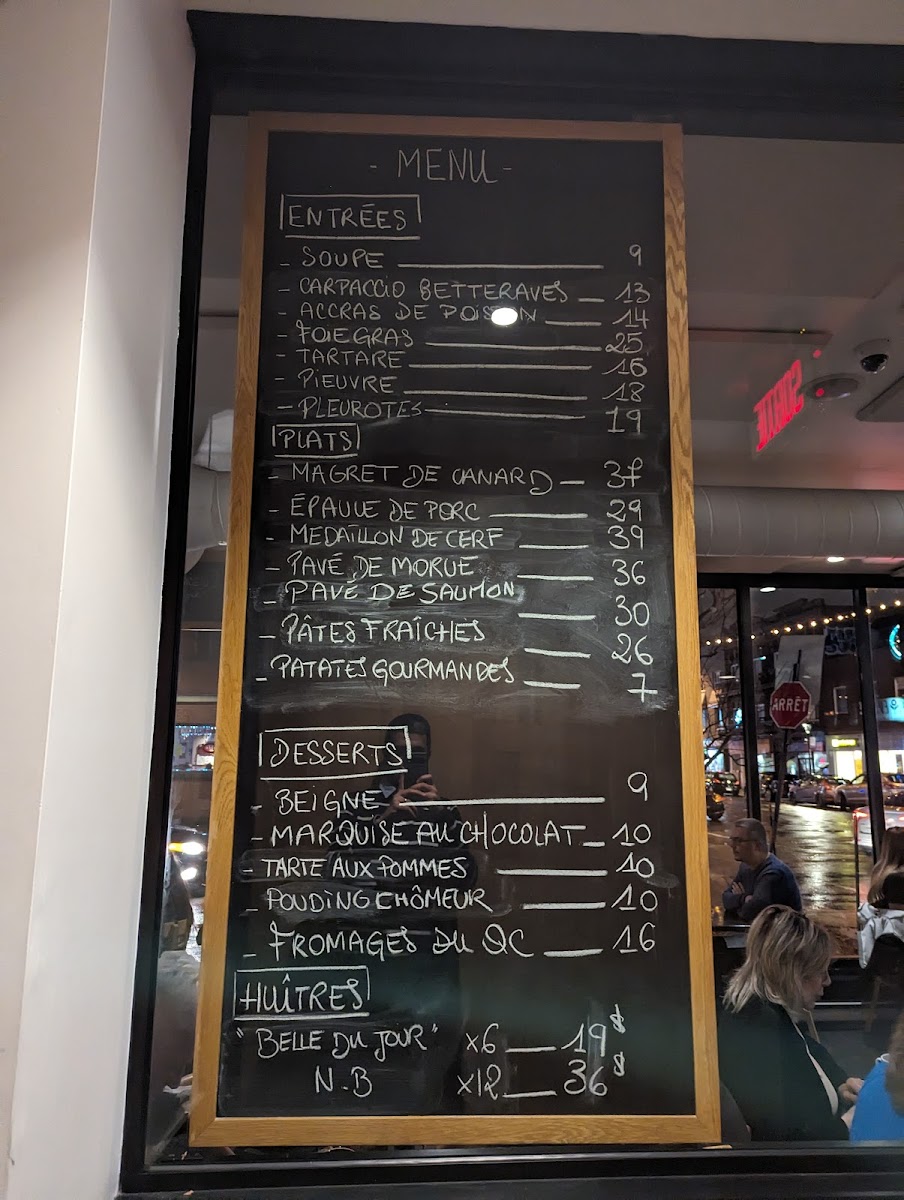 - MENU -
ENTRÉES
- SOUPE 9
- CARPACCIO BETTERAVES 13
- ACCRAS DE POISSON 14
- FOIE GRAS 25
- TARTARE 16
- PIEUVRE 18
- PLEUROTES 19
PLATS
- MAGRET DE CANARD 37
- ÉPAULE DE PORC 29
- MEDAILLON DE CERF 39
- PAVÉ DE MORUE 36
- PAVÉ DE SAUMON 30
- PÂTES FRAÎCHES 26
- PATATES GOURMANDES 7
DESSERTS
- BEIGNE 9
- MARQUISE AU CHOCOLAT 10
- TARTE AUX POMMES 10
- POUDING CHÔMEUR 10
- FROMAGES DU QC 16
HUÎTRES
"BELLE DU JOUR" x6 19$
N.B x12 36$
ARRÊT